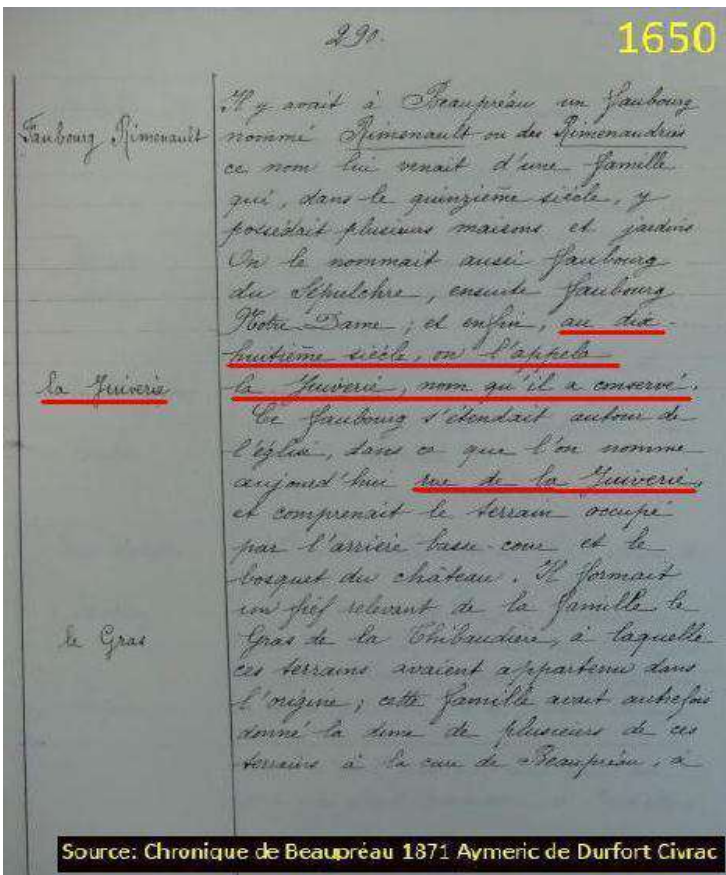 290.
1650
Il y avait à Beaupréau un faubourg
Faubourg Rimenault
nommé Rimenault ou des Rimenaudries
ce nom lui venait d'une famille
qui, dans le quinzième siècle, y
possédait plusieurs maisons et jardins
On le nommait aussi faubourg
du Sépulchre, ensuite faubourg
Notre Dame ; et enfin, au dix-
huitième siècle, on l'appela
la Juiverie
la Juiverie, nom qu'il a conservé.
Ce faubourg s'étendait autour de
l'église, dans ce que l'on nomme
aujourd'hui rue de la Juiverie,
et comprenait le terrain occupé
par l'arrière basse-cour et le
bosquet du château. Il formait
un fief relevant de la famille le
le Gras
Gras de la Thibaudière, à laquelle
ces terrains avaient appartenu dans
l'origine ; cette famille avait autrefois
donné la dime de plusieurs de ces
terrains à la cure de Beaupréau, à
Source: Chronique de Beaupréau 1871 Aymeric de Durfort Civrac